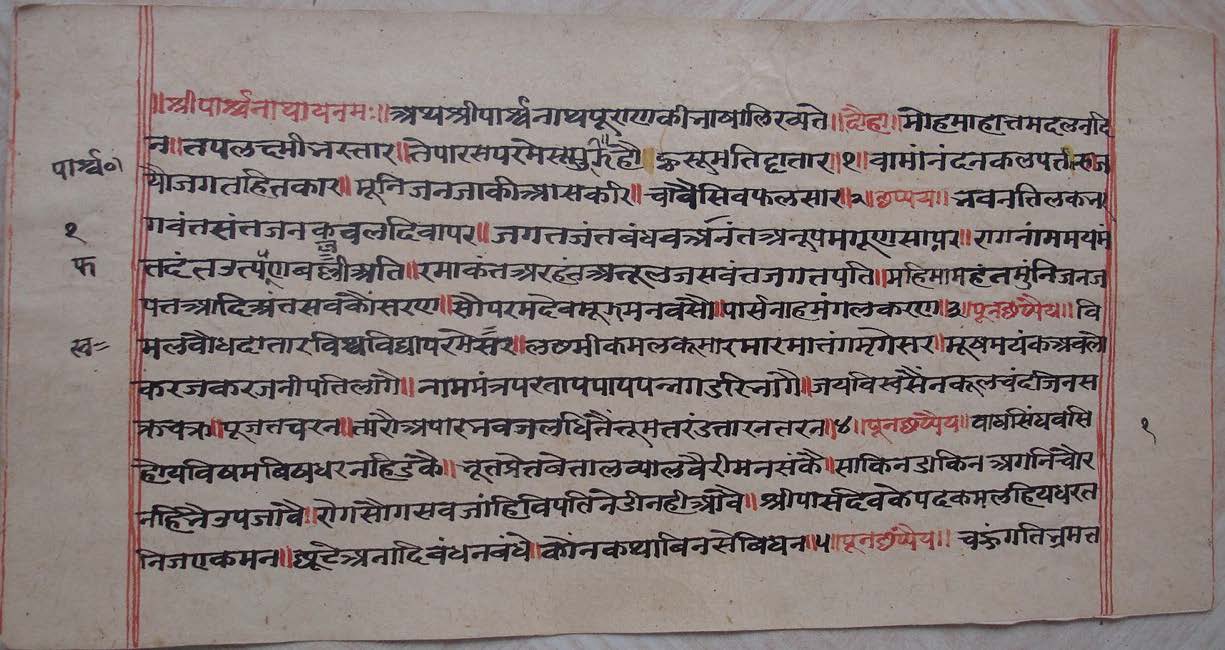 ॥श्रीपार्श्वनाथायनमः॥अथश्रीपार्श्वनाथपूराणकीभाषालिख्यते॥दोहा॥मोहमाहातमदलनदि
न॥तपलछमीभरतार॥तेपारसपरमेस हौ सुमतिदातार॥१॥वामांनंदनकलपतरुज
यौजगतहितकार॥मूनिजनजाकीआसकरि॥चाषैसिवफलसार॥२॥छप्पय॥भवनतिलकभ
गवंतसंतजन दिवापर॥जगतजंतबंधवअनंतअनूपमगूणसापर॥रागनांममयमं
तदंत अति॥रमाकंतअरहंतअतूलजसवंतजगतपति॥महिमामहंतमुंनिजनज
पतआदिअंतसवकौंसरण॥सौपरमदेव मनवसौ॥पार्सनाहमंगलकरण॥३॥पूनछप्पैय॥वि
मलवौधदातारविश्वविद्यापरमेसर॥लछमीकमलकूमारमारमातंगमृगेसर॥मूषमयंकअवलो
कंरजकरजनीपतिलागै॥नाममंत्रपरतापपापपन्नगडरिभागै॥जयविस्वसैंनकूलचंदजिनस
क्रचक्र॥पूजतचरन॥तारौअपारभवजलधितैंतूमतरंडतारनतरन॥४॥पूनछप्पैय॥वाघसिंघवसि
होयविषमविषधरनहिडंकै॥भूतप्रेतबेतालव्यालवैरीमनसंकै॥साकिनडाकिनअगनिचोर
नहिभैउपजावै॥रोगसौगसवजांहिविपतिनेडीनहीआवै॥श्रीपार्सदेवकेपदकमलहियधरत
निजएकमन॥छूटेअनादिबंधनबंधे॥कोंनकथाविनसेविघन॥५॥पूनछप्पैय॥चऊंगतिभ्रमत
पार्श्व०।
१
१